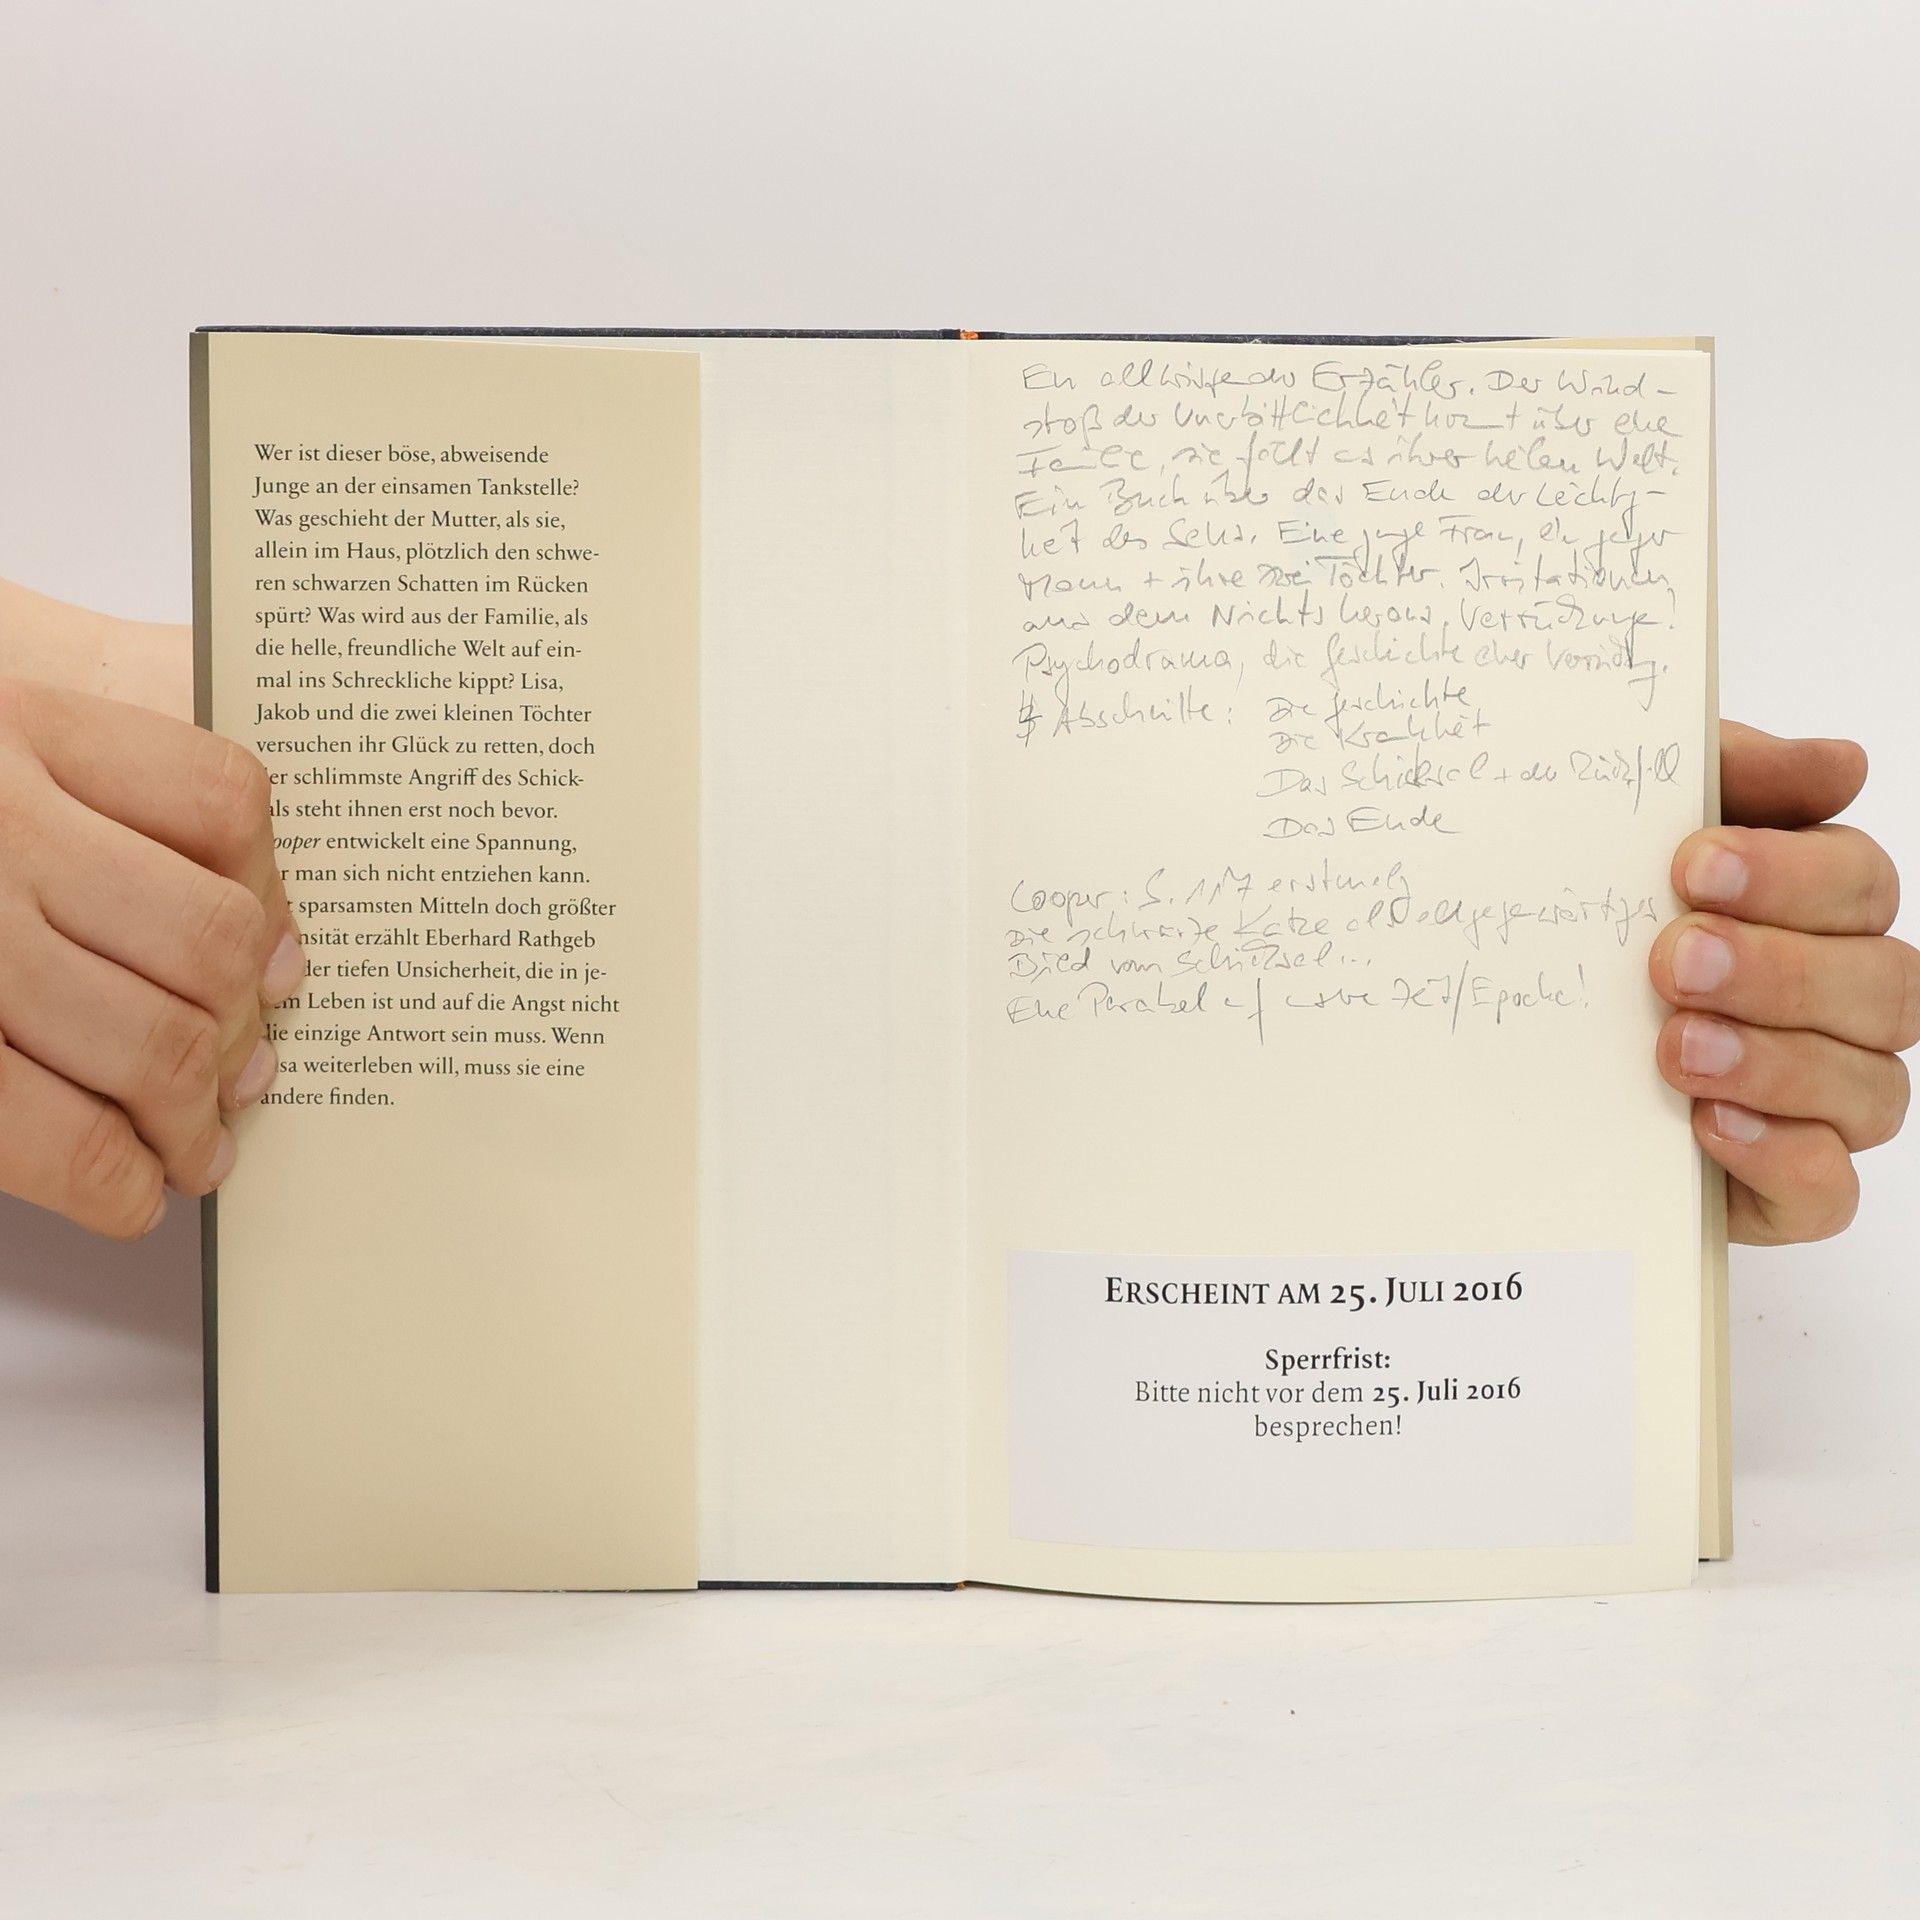 Wer ist dieser böse, abweisende
Junge an der einsamen Tankstelle?
Was geschieht der Mutter, als sie,
allein im Haus, plötzlich den schwe-
ren schwarzen Schatten im Rücken
spürt? Was wird aus der Familie, als
die helle, freundliche Welt auf ein-
mal ins Schreckliche kippt? Lisa,
Jakob und die zwei kleinen Töchter
versuchen ihr Glück zu retten, doch
er schlimmste Angriff des Schick-
als steht ihnen erst noch bevor.
ooper entwickelt eine Spannung,
r man sich nicht entziehen kann.
t sparsamsten Mitteln doch größter
nsität erzählt Eberhard Rathgeb
der tiefen Unsicherheit, die in je-
em Leben ist und auf die Angst nicht
die einzige Antwort sein muss. Wenn
sa weiterleben will, muss sie eine
andere finden.
Ein allwissender Erzähler. Der Wind-
stoß der Unerbittlichkeit kommt über eine
Familie, sie fällt aus ihrer heilen Welt.
Ein Buch über das Ende der Leichtig-
keit des Seins. Eine junge Frau, ein junger
Mann + ihre zwei Töchter. Irritationen,
aus dem Nichts heraus. Verrückung!
Psychodrama, die Geschichte einer
Abschnitte: Die Geschichte
Die Krankheit
Das Schicksal + der Rückfall
Das Ende
Cooper: S. 117 erstmalig
Die schwarze Katze als allgegenwärtiges
Bild vom Schicksal...
Eine Parabel auf unsere Zeit/Epoche!
ERSCHEINT AM 25. JULI 2016
Sperrfrist:
Bitte nicht vor dem 25. Juli 2016
besprechen!